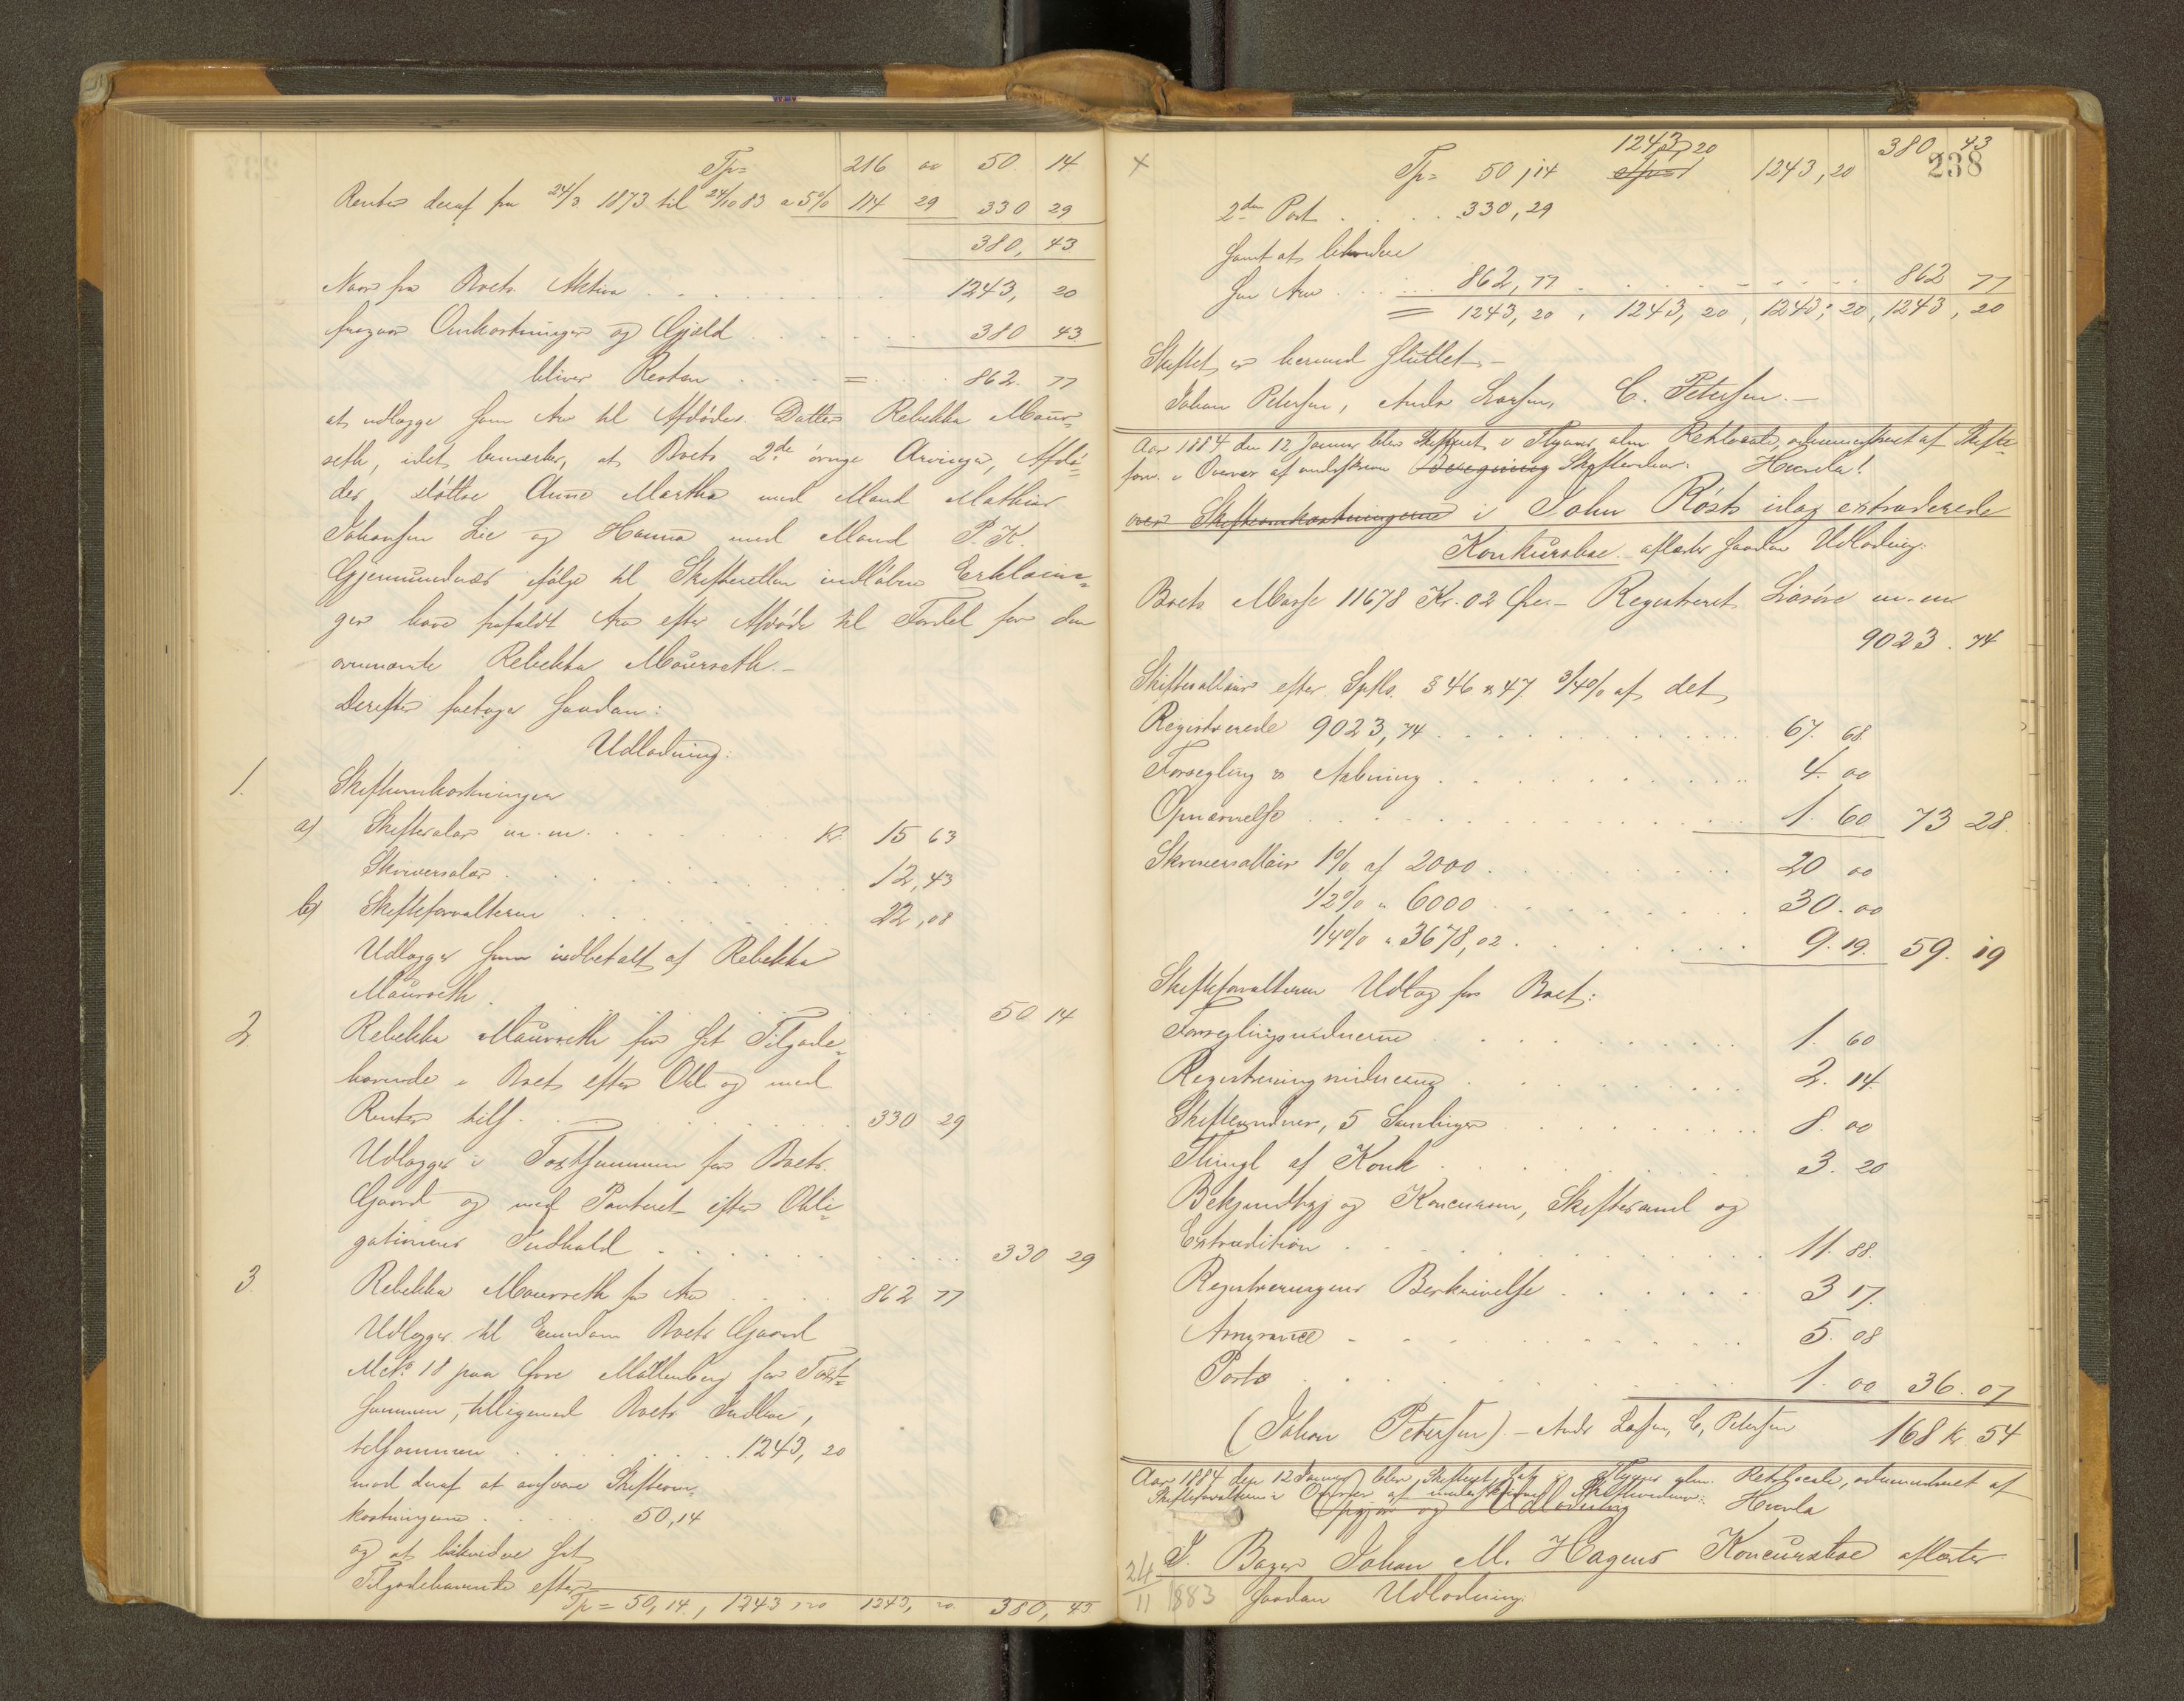 Tp= 216 00 50. 14.
Renter deraf fra 24/3 1873 til 24/10 83 a 5% 114 29 330 29
380, 43
Naar fra Boets Aktiva . . . 1243, 20
fragaar Omkostninger og Gjæld . . . 380 43
bliver Resten . . . = 862. 77
at udlægge som Arv til Afdødes Datter Rebekka Maur-
seth, idet bemærkes, at Boets 2de øvrige Arvinger, Afdø-
des Døttre Anne Martha med Mand Mathias
Johansen Lie og Hanna med Mand P. K.
Gjemundnæs ifølge til Skifteretten indløbne Erklærin-
ger have frafaldt Arv efter Afdøde til Fordel for den
ovennævnte Rebekka Maurseth.-
Derefter foretoges saadan:
Udlodning:
1. Skifteomkostninger
a) Skiftesalær m.m. . . . Kr. 15 63
Skriversalær . . . 12,43
b) Skifteforvalteren . . . 22,08
Udlægges som indbetalt af Rebekka
Maurseth . . . 50 14
2. Rebekka Maurseth for sit Tilgode-
havende i Boet efter Obl. og med
Renter tils. . . . 330 29
Udlægges i Taxtsummen for Boets
Gaard og med Panteret efter Obli-
gationens Indhold . . . 330 29
3. Rebekka Maurseth for Arv . . . 862 77
Udlægges til Eiendom Boets Gaard
Mctr. 18 paa Øvre Møllenberg for Taxt-
summen, tilligemed Boets Indbo,
tilsammen . . . 1243, 20
mod deraf at ansvare Skifteom-
kostningerne . . . 50,14
og at likvidere sit
Tilgodehavende efter
Tp = 50,14, 1243 20 1243, 20 380, 43
238
1243,20 380 43
Tp= 50,14 1243,20
2den Post . . . 330,29
samt at likvidere
sin Arv . . . 862,77 . . . 862 77
= 1243,20, 1243,20, 1243,20, 1243,20
Skiftet er hermed sluttet.-
Johan Petersen, Andr Larsen, C. Petersen.-
Aar 1884 den 12 Januar blev Skifteret i Thgaards alm Retslocale, administreret af Skifte-
forv. i Overvær af underskrevne Beregning Skiftevidner. Hvorda!
over Skifteomkostningerne i John Røsts idag extraderede
Konkursboe. afsluttes saadan Udlodning:
Boets Masse 11678 Kr. 02 Øre.- Registreret Løsøre m.m
9023. 74
Skiftesallair efter Sptls. § 46 & 47 3/4% af det
Registrerede 9023,74 . . . 67. 68
Forsegling & Aabning . . . 4. 00
Opnævnelse . . . 1. 60 73 28.
Skriversallair 1% af 2000 . . . 20 00
1/2% " 6000 . . . 30. 00
1/4% " 3678,02 . . . 9. 19. 59. 19
Skifteforvalterens Udlæg for Boet:
Forseglingsvidnerne . . . 1. 60
Registreringsvidnerne . . . 2. 14.
Skiftevidner, 5 Samlinger . . . 8. 00
Thingl af Konk . . . 3. 20
Bekjendtgj og Koncursen, Skiftesaml og
Extradition . . . 11. 88.
Registreringens Beskrivelse . . . 3 17.
Assurance . . . 5. 08
Porto . . . 1. 00 36. 07
(Johan Petersen).- Andr Larsen, C, Petersen 168 Kr 54
Aar 1884 den 12 Januar blev Skifteret sat i Thgaards alm. Retslocale, administreret af
Skifteforvalteren i Overvær af underskrevne Skiftevidner: Hvorda
Opgjør og Udlodning
I Bager Johan M. Hagens Koncursboe afsluttes
24/11 1883 saadan Udlodning: